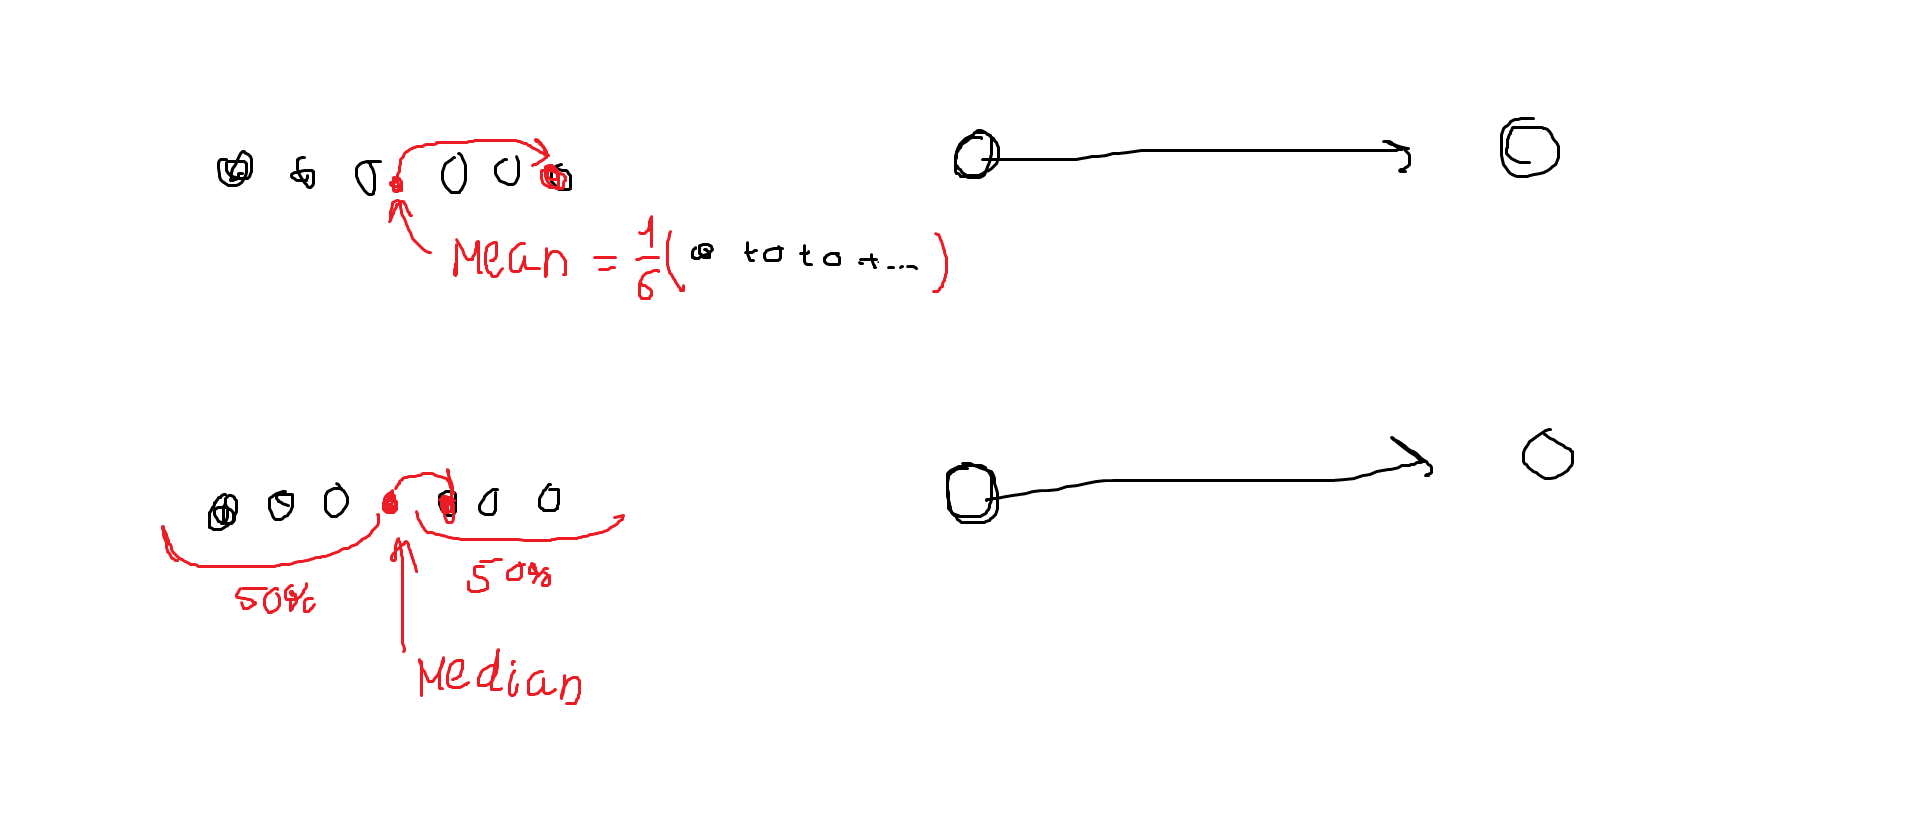 Mean = 1/6 (o + o + o + ...)
50%
50%
Median